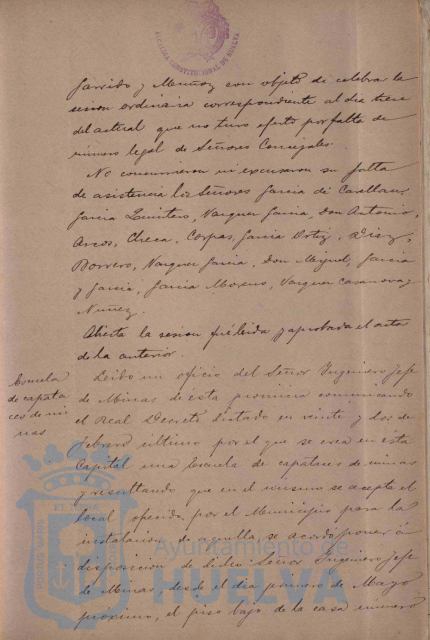 ALCALDIA CONSTITUCIONAL DE HUELVA
Garrido y Muñoz con objeto de celebrar la
sesion ordinaria correspondiente al dia trece
del actual que no tuvo efecto por falta de
número legal de Señores Concejales.
No concurrieron ni excusaron su falta
de asistencia los Señores Garcia de Casellan,
Garcia Quintero, Vazquez Garcia, Don Antonio,
Arcos, Checa, Corpas, Garcia Ortiz, Diaz,
Borrero, Vazquez Garcia, Don Miguel, Garcia
y Garcia, Garcia Moreno, Vazquez Casanova y
Nuñez.
Abierta la sesion fué leida y aprobada el acta
de la anterior.
Escuela
de capata
ces de mi
nas
Leido un oficio del Señor Ingeniero Jefe
de Minas de esta provincia comunicando
el Real Decreto dictado en veinte y dos de
febrero último por el que se crea en esta
Capital una Escuela de capataces de minas
y resultando que en el mismo se acepta el
local ofrecido por el Municipio para la
instalacion de aquella, se acordó poner á
disposicion de dicho Señor Ingeniero Jefe
de Minas, desde el dia primero de Mayo
próximo, el piso bajo de la casa número
Ayuntamiento de
HUELVA